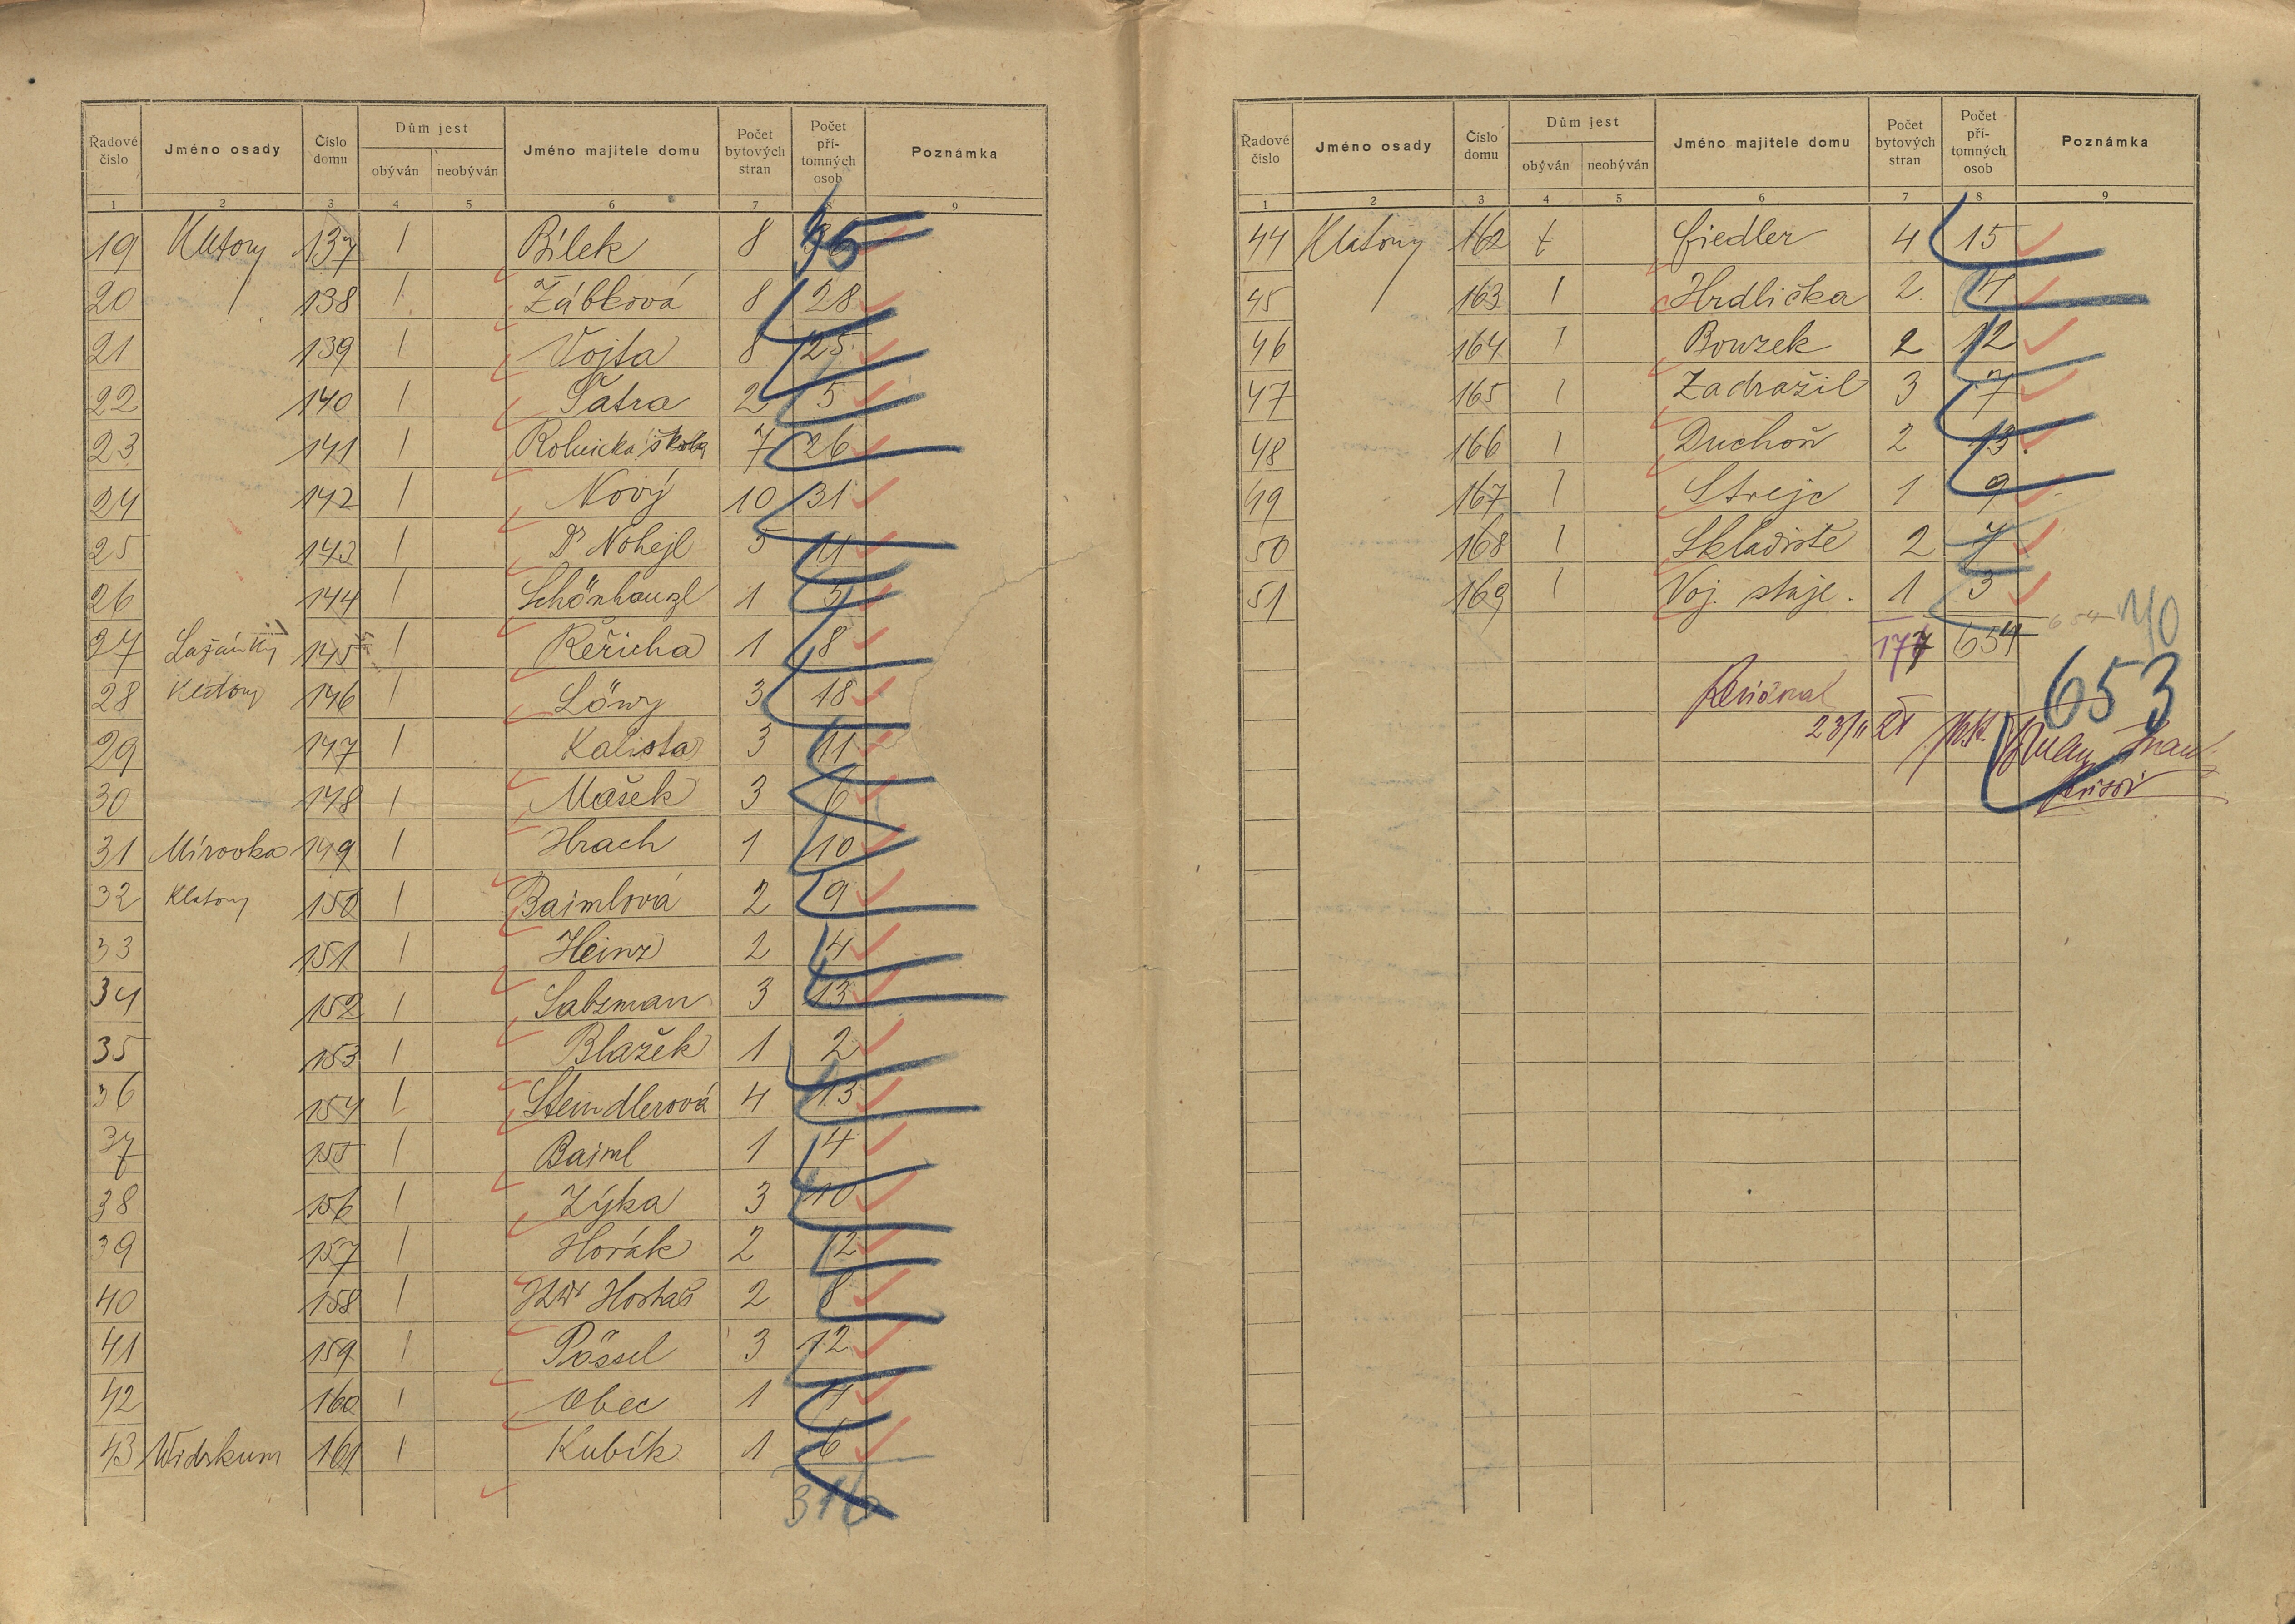 Řadové číslo | Jméno osady | Číslo domu | Dům jest | Jméno majitele domu | Počet bytových stran | Počet pří-tomných osob | Poznámka
obýván | neobýván
1 2 3 4 5 6 7 8 9
19 Klatovy 137 1 Bílek 8 36
20 / 138 1 Žábková 8 28
21 139 1 Vojta 8 25
22 140 1 Šatra 2 5
23 141 1 Rolnická škola 7 26
24 142 1 Nový 10 31
25 143 1 Dr Nohejl 5 11
26 144 1 Schönhauzl 1 5
27 Lažánky 145 1 Řeřicha 1 8
28 Klatovy 146 1 Löwy 3 18
29 147 1 Kalista 3 11
30 148 1 Mašek 3 6
31 Mírovka 149 1 Hrach 1 10
32 Klatovy 150 1 Baimlová 2 9
33 151 1 Heinz 2 4
34 152 1 Salzman 3 13
35 153 1 Blažek 1 2
36 154 1 Steindlerová 4 13
37 155 1 Baiml 1 4
38 156 1 Zýka 3 10
39 157 1 Horák 2 12
40 158 1 Hostaš 2 8
41 159 1 Pössel 3 12
42 160 1 Obec 1 7
43 161 1 Kubík 1 6
316
Řadové číslo | Jméno osady | Číslo domu | Dům jest | Jméno majitele domu | Počet bytových stran | Počet pří-tomných osob | Poznámka
obýván | neobýván
1 2 3 4 5 6 7 8 9
44 Klatovy 162 1 Fiedler 4 15
45 / 163 1 Hrdlička 2 4
46 164 1 Bouzek 2 12
47 165 1 Zadražil 3 7
48 166 1 Duchoň 2 13
49 167 1 Strejc 1 9
50 168 1 Skladiště 2 7
51 169 1 Voj. stáje. 1 3
177 654 654 40
653
Revidoval
23/II 21
revisor